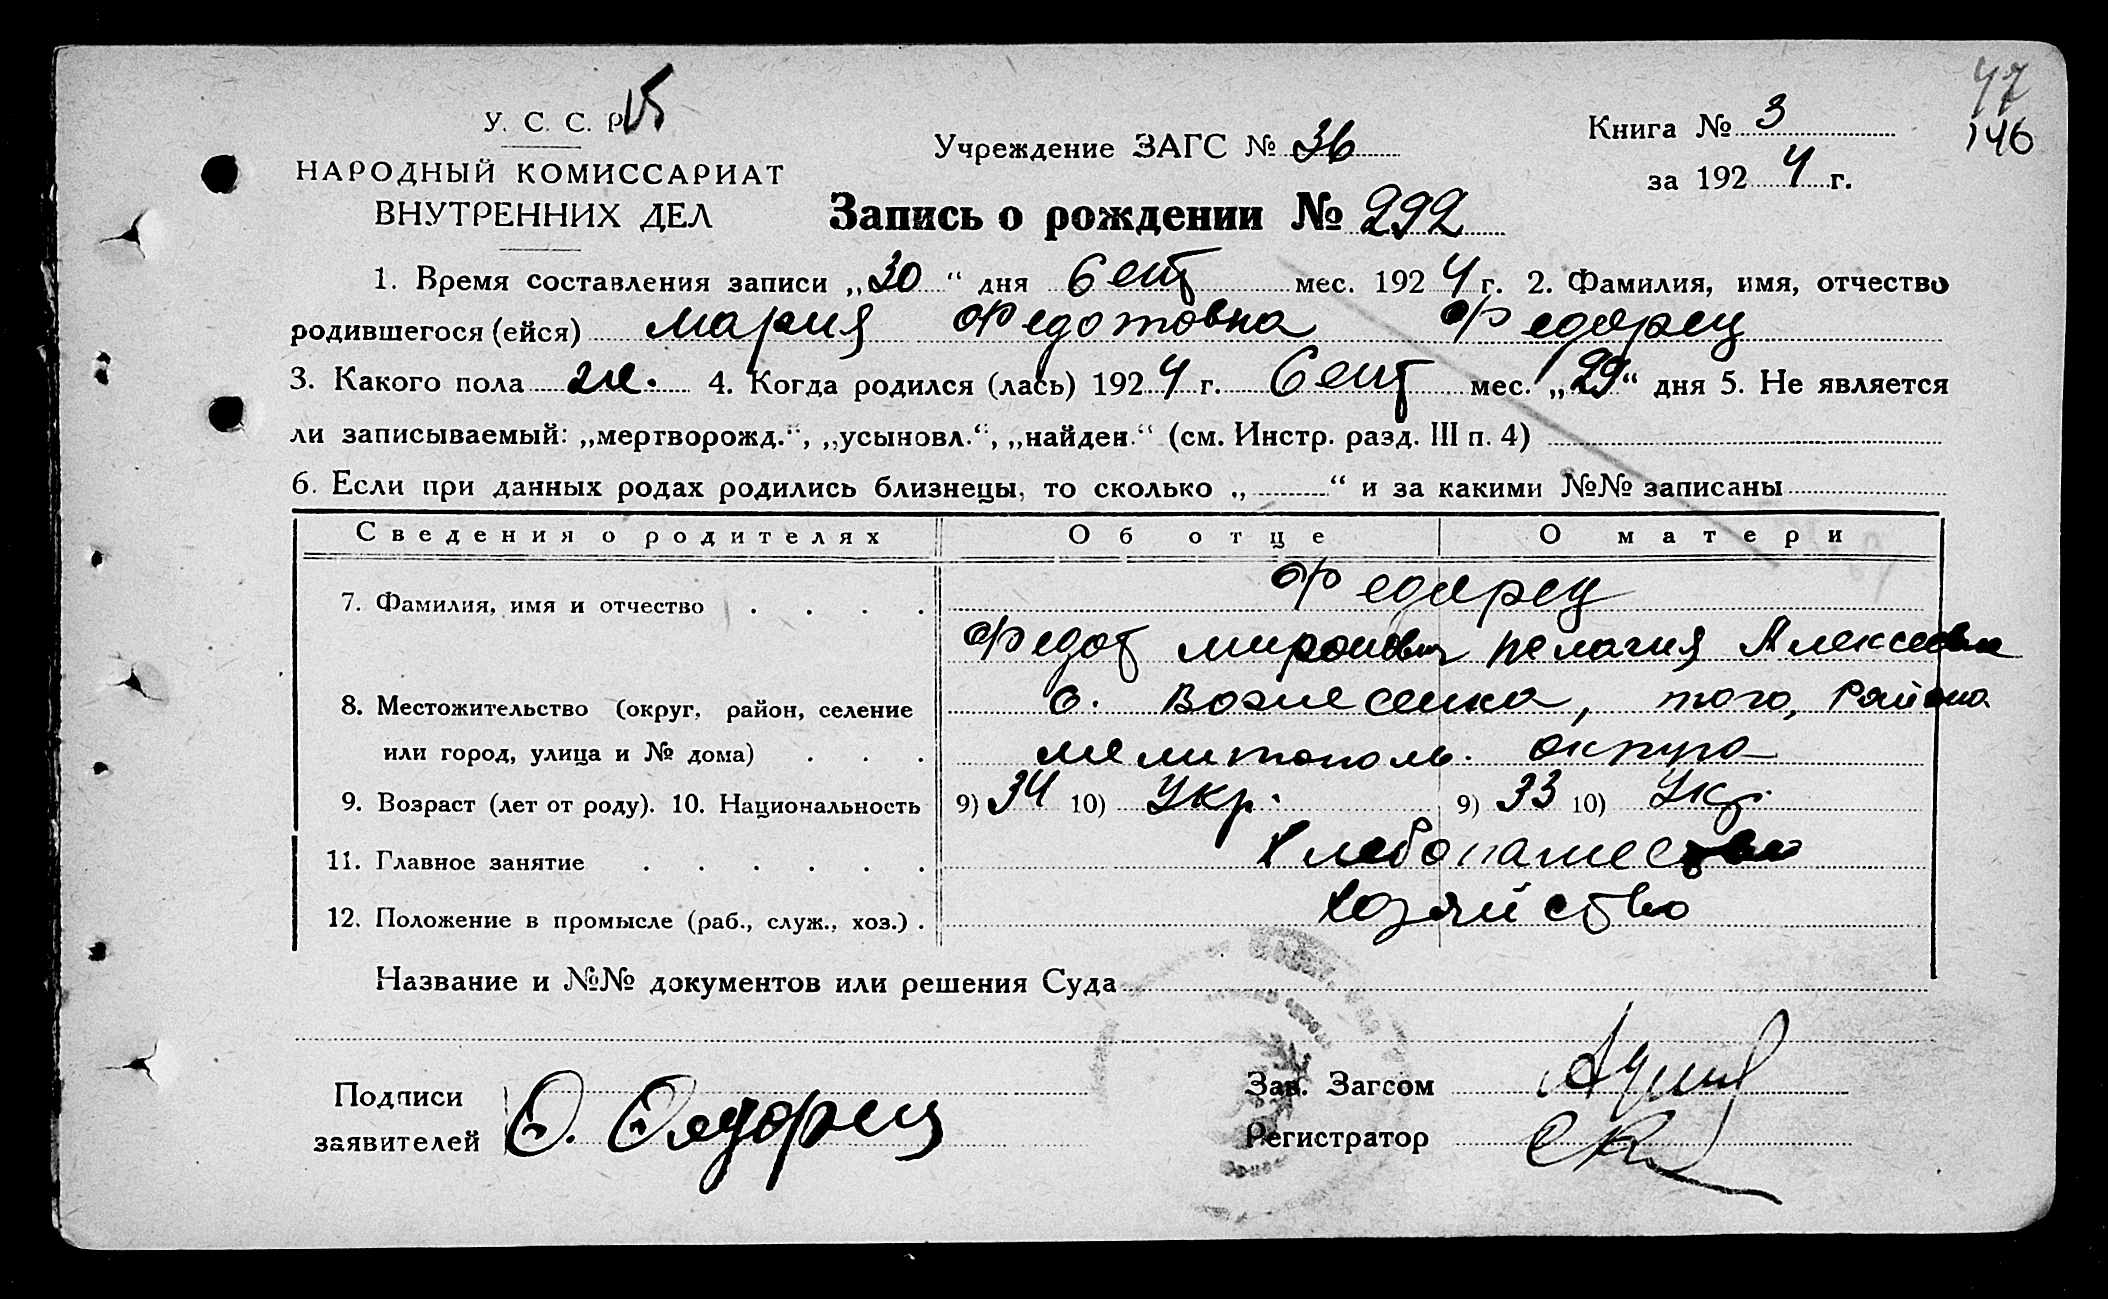 47
146
У. С. С. Р.
НАРОДНЫЙ КОМИССАРИАТ
ВНУТРЕННИХ ДЕЛ
Учреждение ЗАГС № 36
Книга № 3
за 1924 г.
Запись о рождении № 292
1. Время составления записи „30“ дня Сент мес. 1924 г. 2. Фамилия, имя, отчество
родившегося (ейся) Мария Федотовна Федорец
3. Какого пола ж. 4. Когда родился (лась) 1924 г. Сент мес. „29“ дня 5. Не является
ли записываемый: „мертворожд.“, „усыновл.“, „найден.“ (см. Инстр. разд. III п. 4)
6. Если при данных родах родились близнецы, то сколько „ “ и за какими №№ записаны
Сведения о родителях Об отце О матери
7. Фамилия, имя и отчество . . . . Федорец
Федот Миронович Пелагия Алексеевна
8. Местожительство (округ, район, селение с. Вознесенка, того, Района
или город, улица и № дома) . . . Мелитополь. округа
9. Возраст (лет от роду). 10. Национальность 9) 34 10) Укр. 9) 33 10) Укр.
11. Главное занятие . . . . . . Хлебопашество
12. Положение в промысле (раб., служ., хоз.) . Хозяйство
Название и №№ документов или решения Суда
Подписи
заявителей Ѳ. Ѳедорец
Зав. Загсом
Регистратор